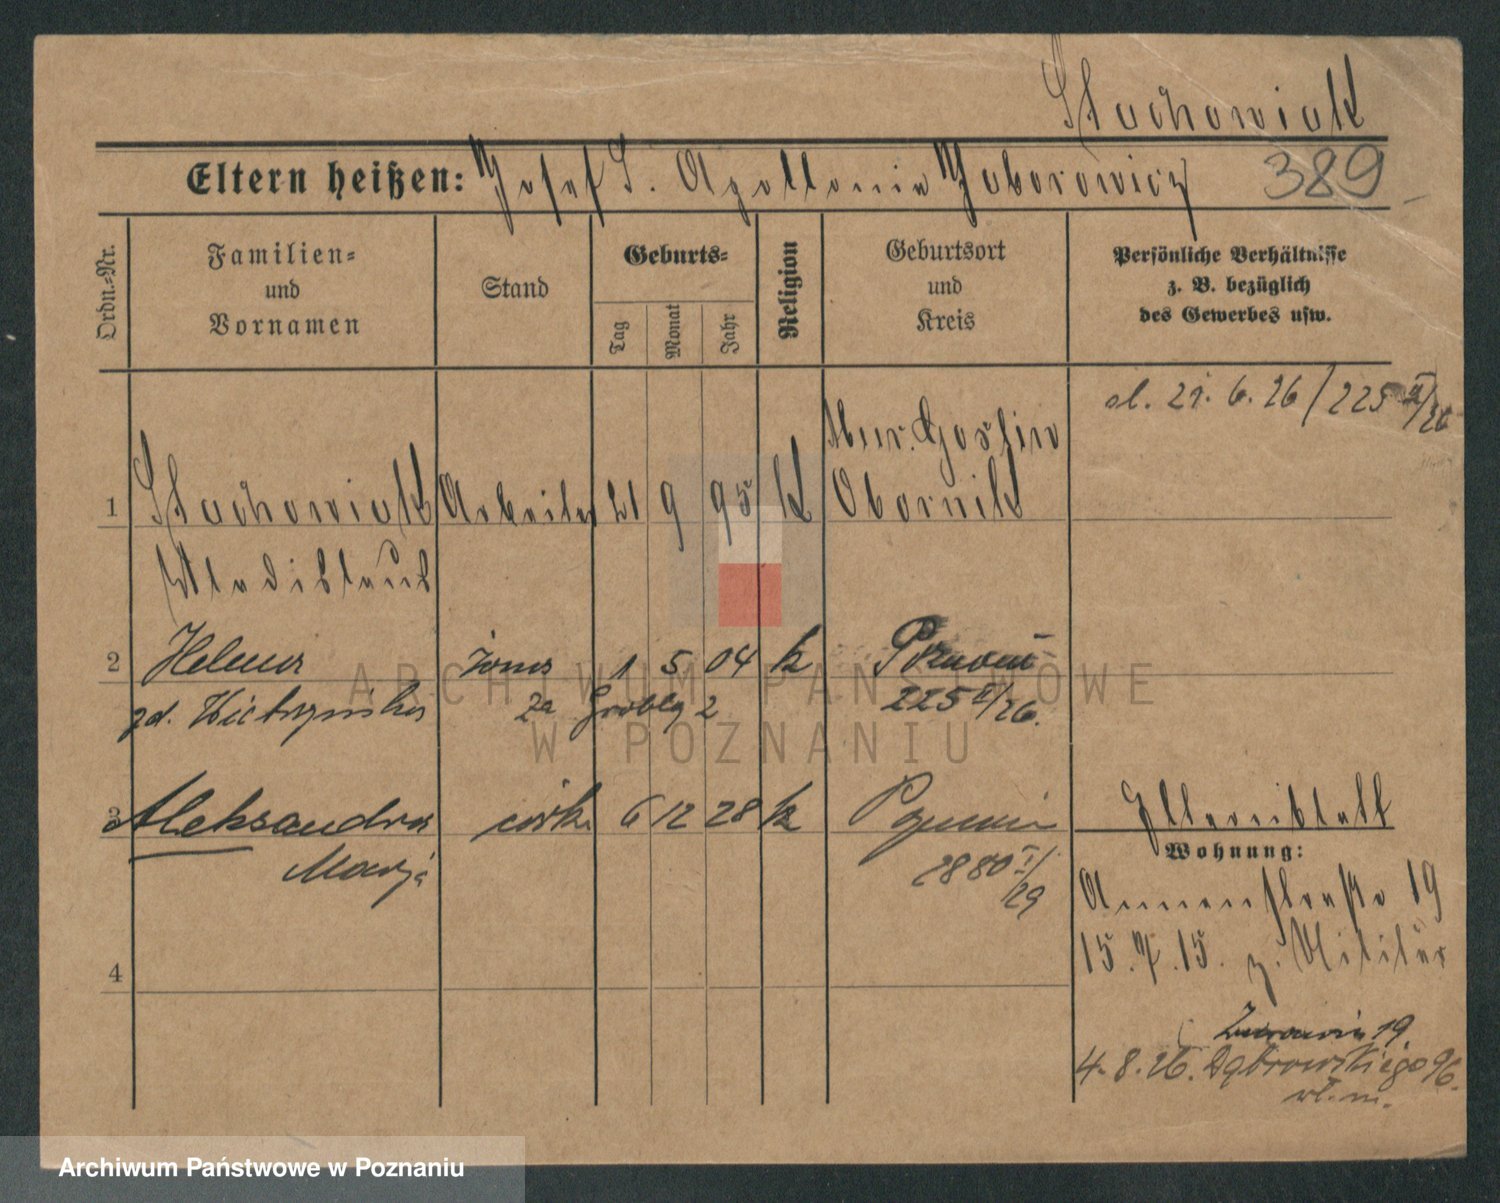 Stachowiak
Eltern heißen: Josef S. Apollonia Gaborowicz 389
Ordn.-Nr. Familien- und Vornamen Stand Geburts- Tag Monat Jahr Religion Geburtsort und Kreis Persönliche Verhältnisse z. B. bezüglich des Gewerbes usw.
sl. 21. 6. 26 / 225 II/26
Mur. Goslin
1 Stachowiak Arbeiter 21 9 95 K Obornik
Wladislaus
2 Helena żona 1 5 04 k Poznań
ARCHIWUM PAŃSTWOWE
zd. 2a Grobla 2 225 II/26.
W POZNANIU
3 Aleksandra córka 6 12 28 k Poznań
Marja 2880 I/29
Elternblatt
Wohnung:
Annenstraße 19
15.7.15. z. Militär
4
Żurawia 19
4. 8. 26. Dąbrowskiego 96.
wł. m.
Archiwum Państwowe w Poznaniu